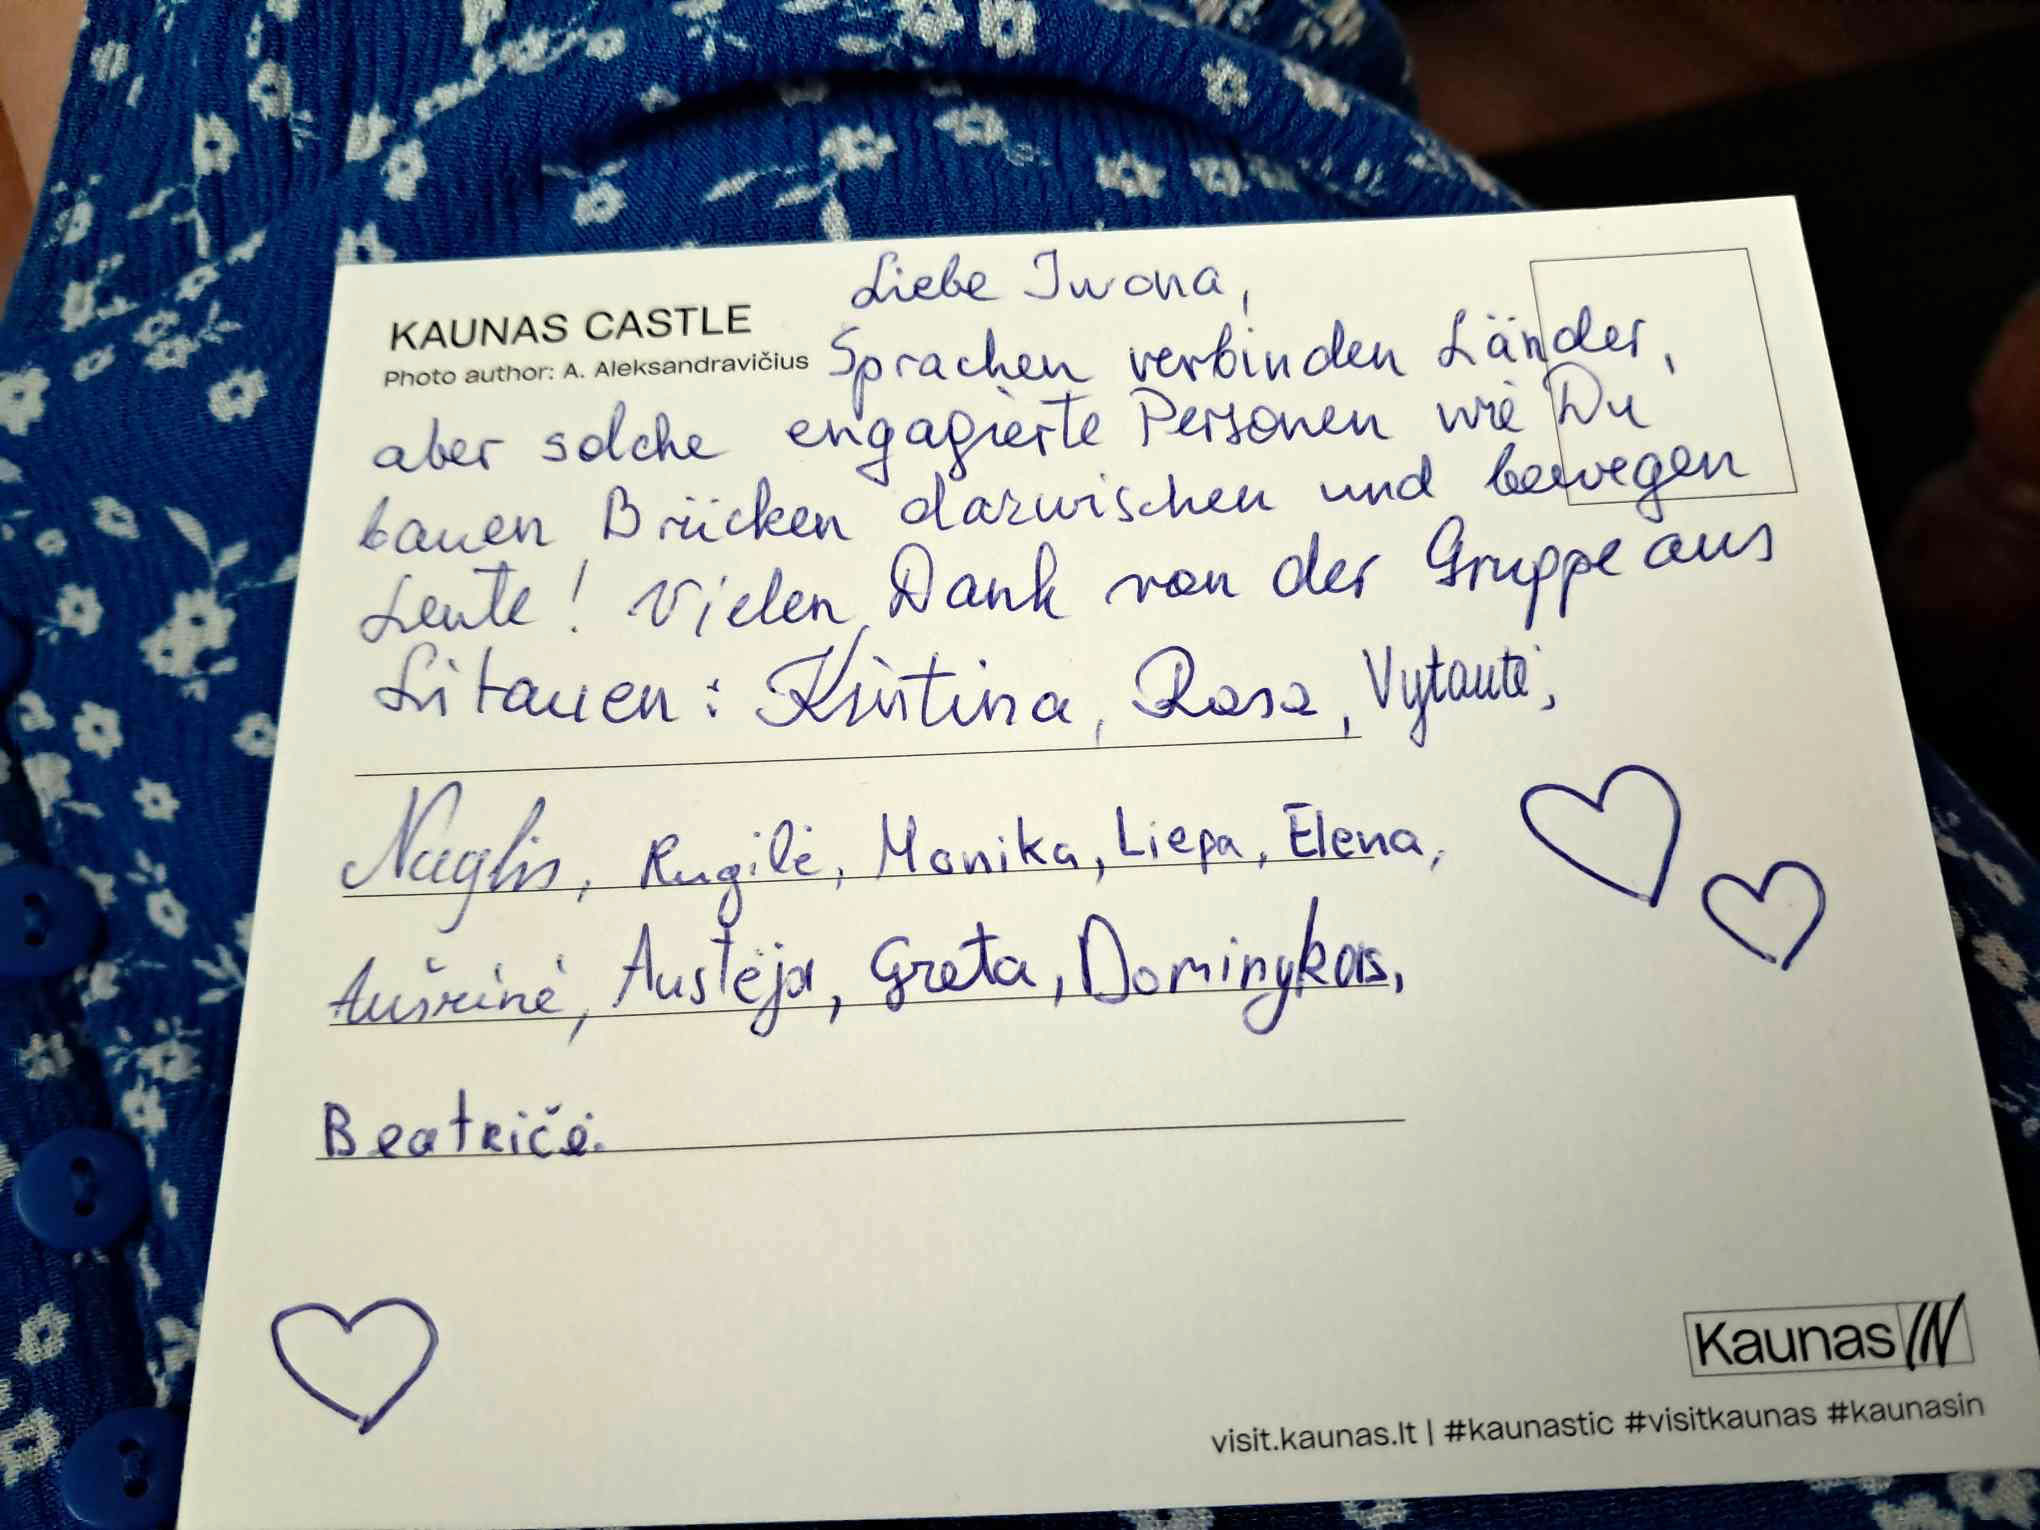 KAUNAS CASTLE
Photo author: A. Aleksandravičius
Liebe Iwona,
Sprachen verbinden Länder,
aber solche engagierte Personen wie Du
bauen Brücken dazwischen und bewegen
Leute! Vielen Dank von der Gruppe aus
Litauen: Kristina, Rasa, Vytautė,
Naglis, Rugilė, Monika, Liepa, Elena,
Aušrinė, Austėja, Greta, Dominykas,
Beatričė.
KaunasIN
visit.kaunas.lt | #kaunastic #visitkaunas #kaunasin